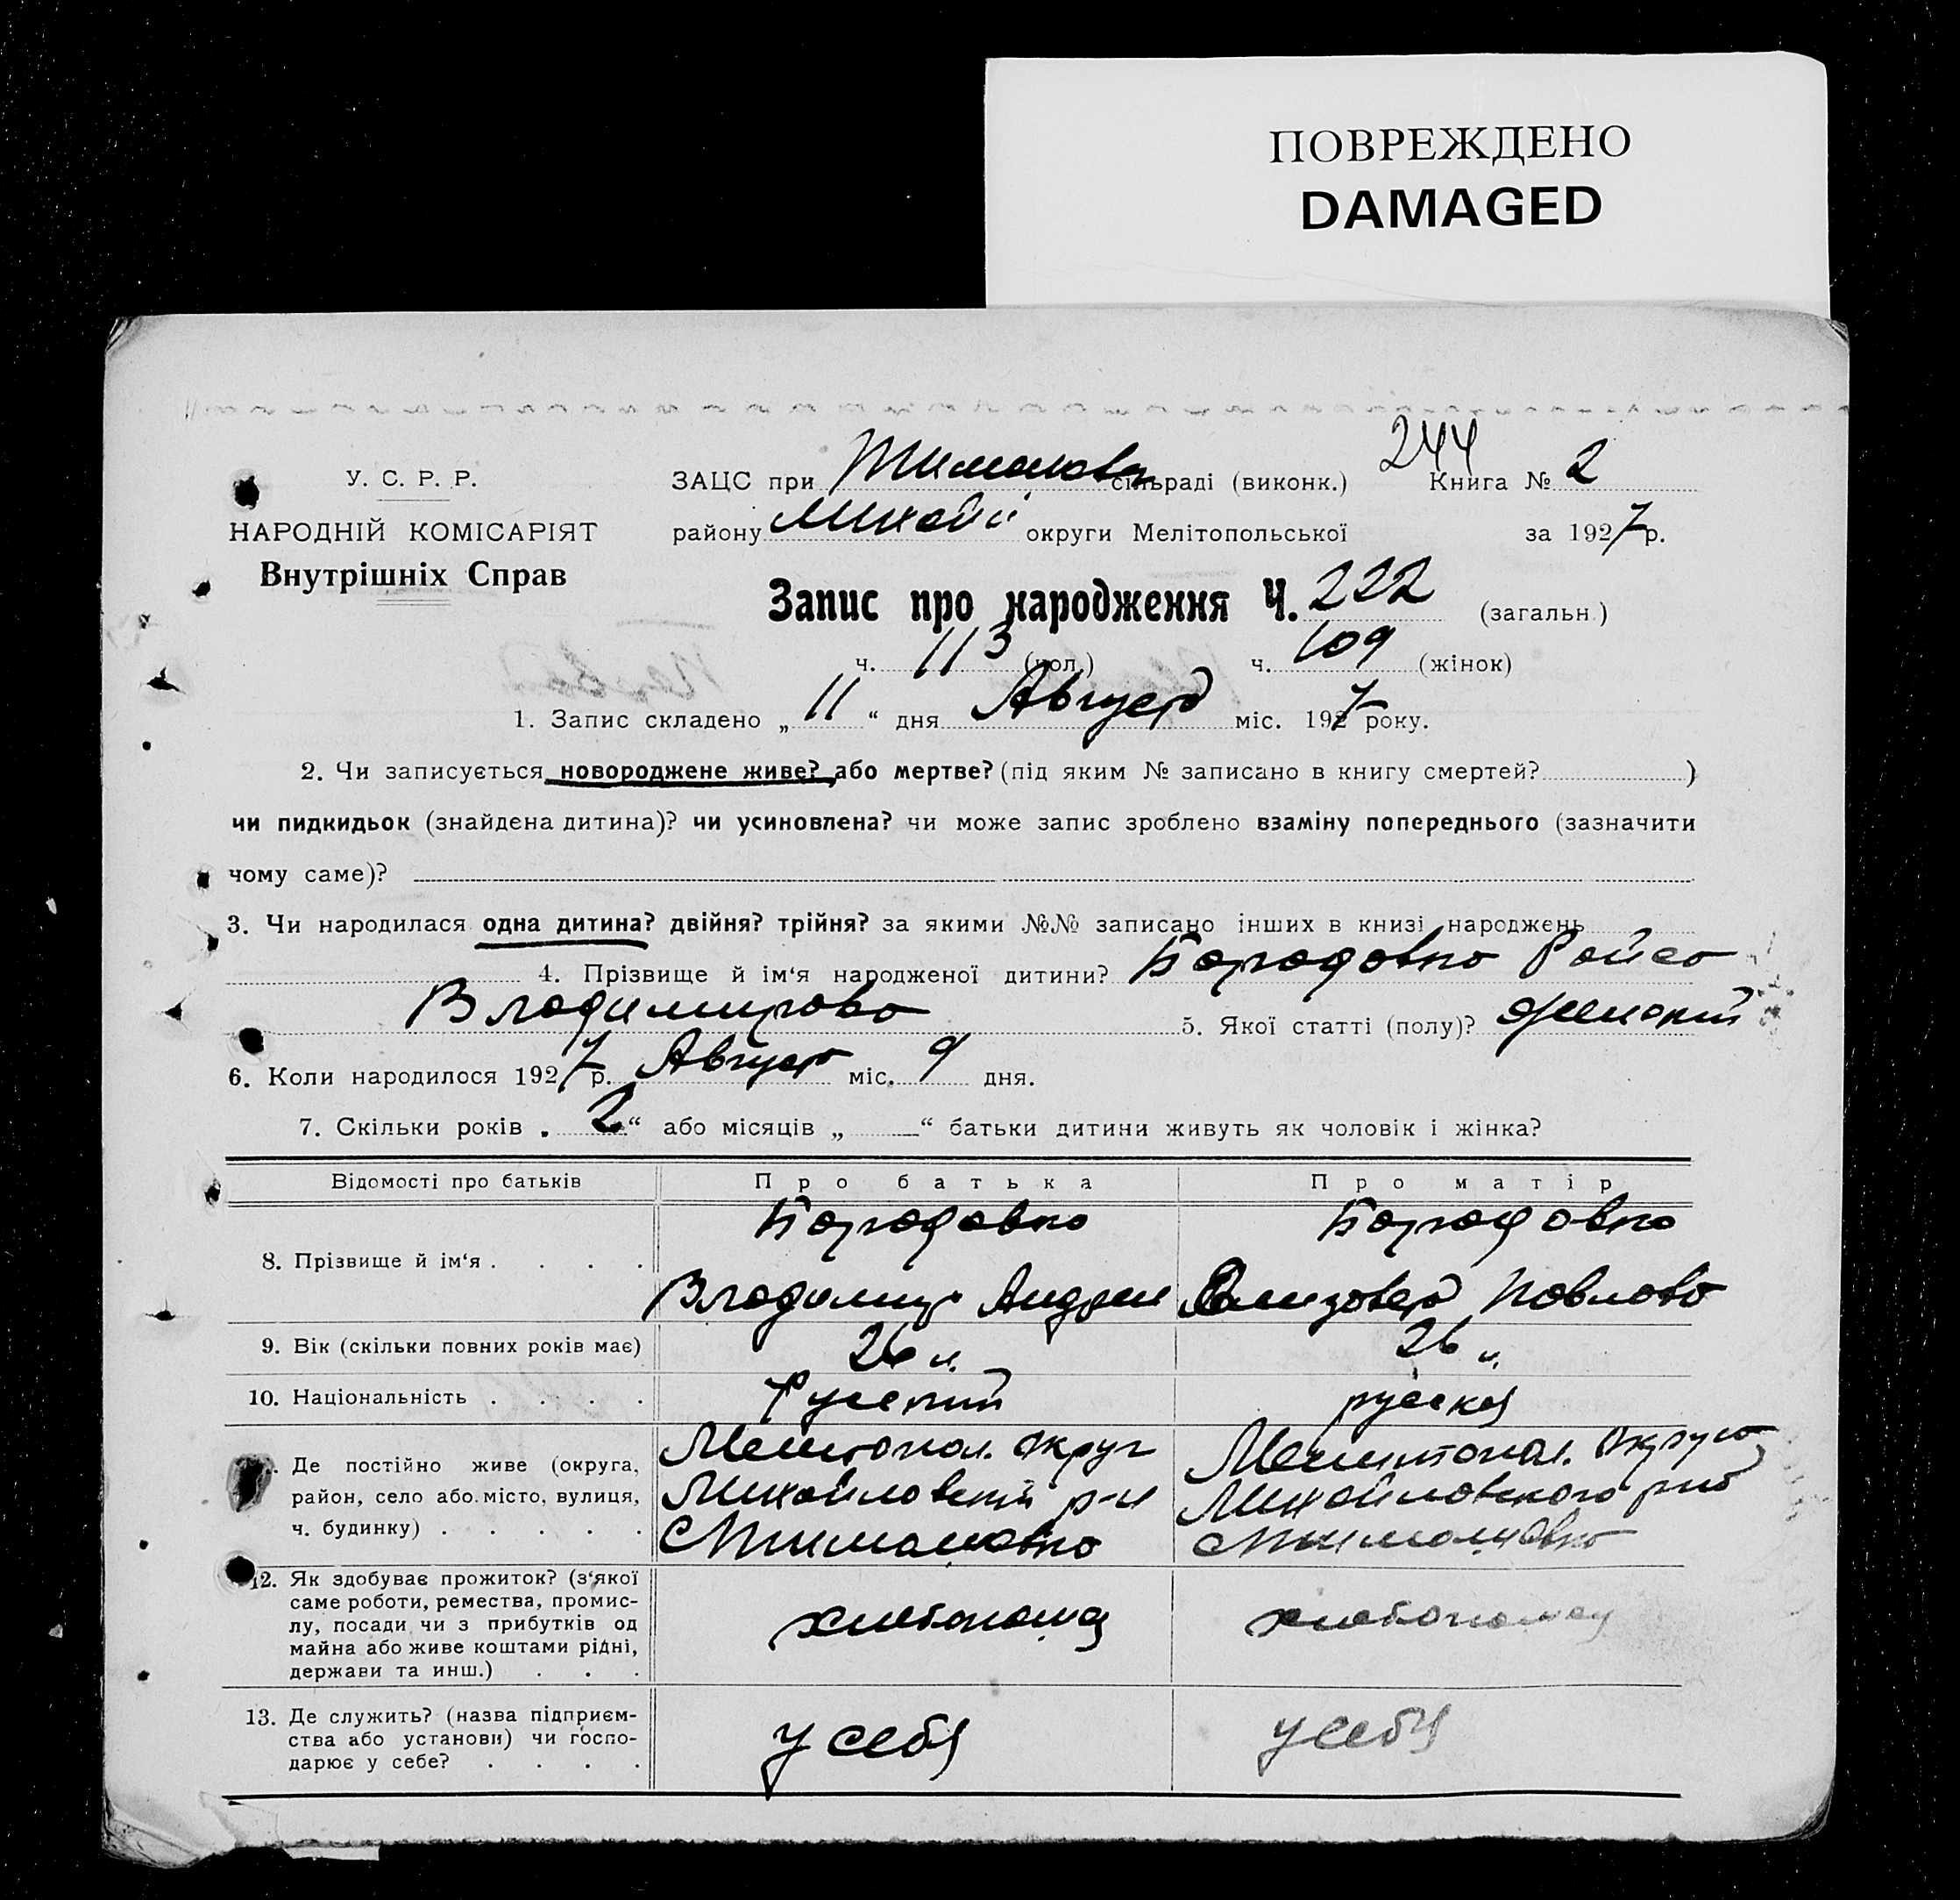 ПОВРЕЖДЕНО
DAMAGED
244
У. С. Р. Р.
НАРОДНІЙ КОМІСАРІЯТ
Внутрішніх Справ
ЗАЦС при Тимашовк сільраді (виконк.) Книга № 2
району Михайл округи Мелітопольської за 1927 р.
Запис про народження Ч. 222 (загальн.)
ч. 113 (чол.) ч. 109 (жінок)
1. Запис складено „ 11 “ дня Август міс. 1927 року.
2. Чи записується новороджене живе? або мертве? (під яким № записано в книгу смертей? )
чи пидкидьок (знайдена дитина)? чи усиновлена? чи може запис зроблено взаміну попереднього (зазначити
чому саме)?
3. Чи народилася одна дитина? двійня? трійня? за якими №№ записано інших в книзі народжень
4. Прізвище й ім‘я народженої дитини? Бородовко Раиса
Владимирова 5. Якої статті (полу)? Женский
6. Коли народилося 1927 р. Август міс. 9 дня.
7. Скільки років „ 2 “ або місяців „ — “ батьки дитини живуть як чоловік і жінка?
Відомості про батьків Про батька Про матір
8. Прізвище й ім‘я . . . . Бородовко Бородовко
Владимир Андрее Елизовет Повлово
9. Вік (скільки повних років має) 26 26
10. Національність . . . . Русский русская
Де постійно живе (округа, район, село або місто, вулиця, ч. будинку) . . . . . Мелитопол. округ Мелитопол. Округо
Михайловский р-н Михайловского р-но
Тимашовко Тимашовко
12. Як здобуває прожиток? (з‘якої
саме роботи, ремества, промис-
лу, посади чи з прибутків од
майна або живе коштами рідні,
держави та инш.) . . .
хлебопошец хлебопошец
13. Де служить? (назва підприєм-
ства або установи) чи госпо-
дарює у себе? . . . .
у себя у себя